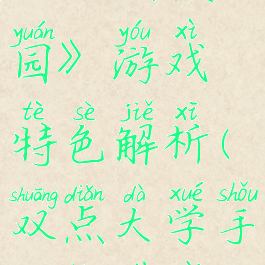 yuán yóu xì
园》 游戏
tè sè jiě xī
特色解析(
shuāng diǎn dà xué shǒu
双点大学手